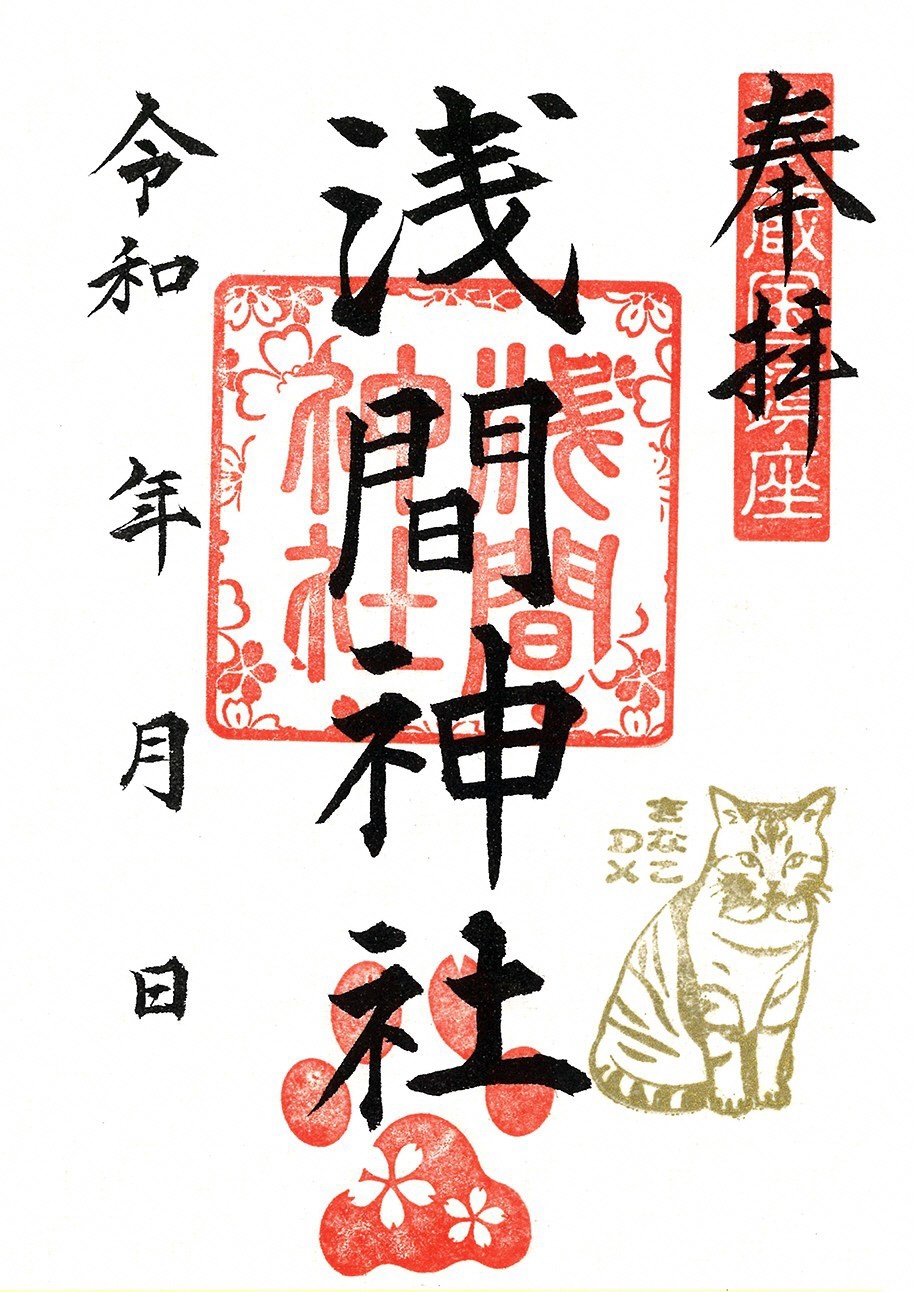 奉拝
武蔵国鎮座
浅間神社
浅間神社
きなこ
DX
令和 年 月 日